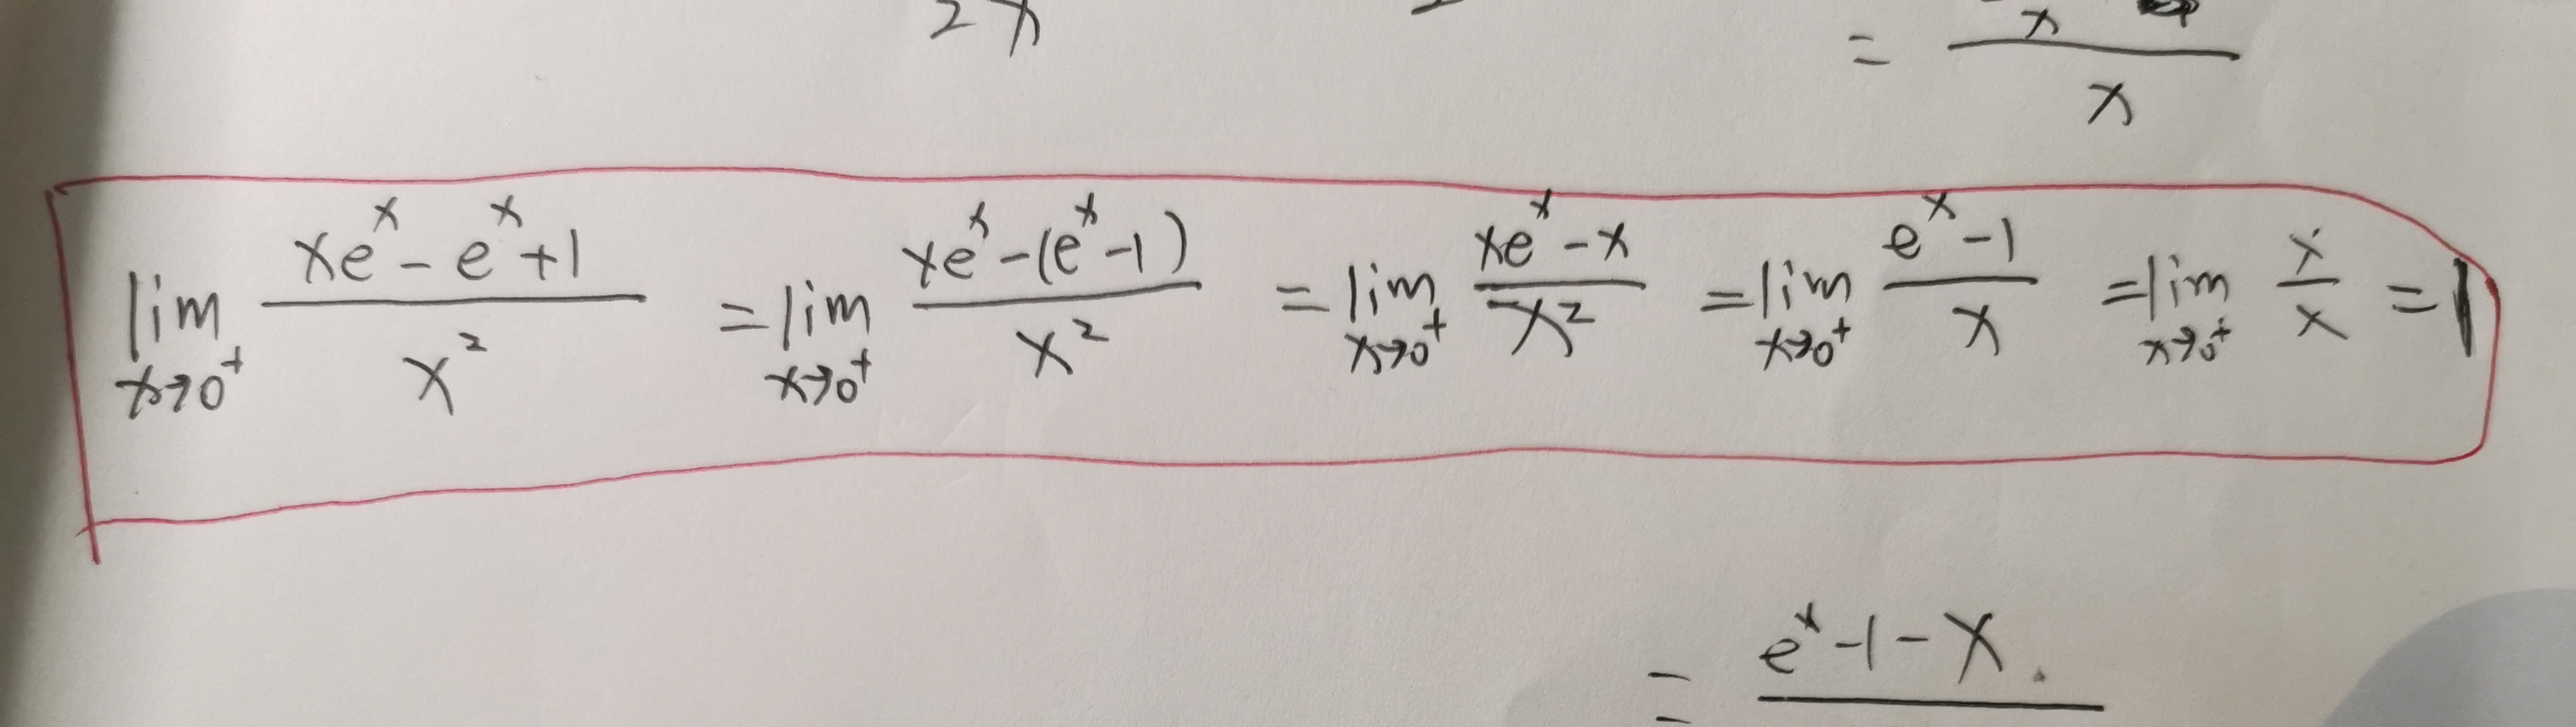 2x
= x
x
lim x→0⁺ (xeˣ - eˣ + 1)/x² = lim x→0⁺ (xeˣ - (eˣ - 1))/x² = lim x→0⁺ (xeˣ - x)/x² = lim x→0⁺ (eˣ - 1)/x = lim x→0⁺ x/x = 1
= eˣ - 1 - x